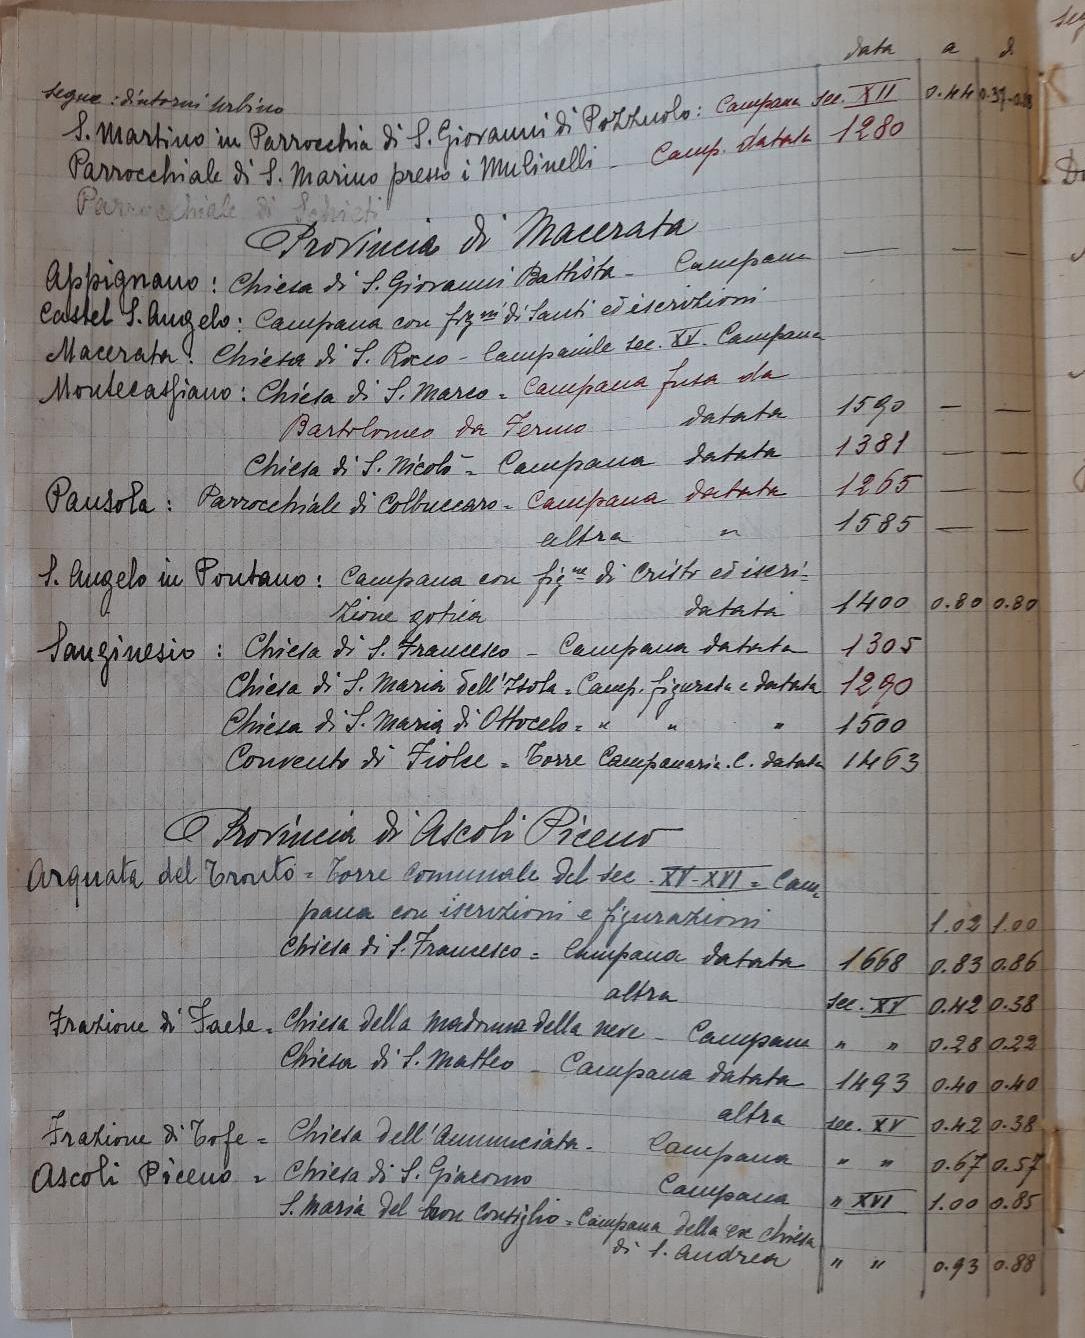 data a d
segue: dintorni Urbino
S. Martino in Parrocchia di S. Giovanni di Pozzuolo: Campana sec. XII 0.44 0.37-0.38
Parrocchiale di S. Marino presso i Mulinelli - Camp. datata 1280
Parrocchiale di Schieti
Provincia di Macerata
Appignano: Chiesa di S. Giovanni Battista - Campana — — —
Castel S. Angelo: Campana con figni di Santi ed iscrizioni
Macerata: Chiesa di S. Rocco - Campanile sec. XV. Campana
Montecassiano: Chiesa di S. Marco = Campana fusa da
Bartolomeo da Fermo datata 1590 — —
Chiesa di S. Nicolò = Campana datata 1381 — —
Pausola: Parrocchiale di Colbuccaro = Campana datata 1265 — —
altra " 1585 — —
S. Angelo in Pontano: Campana con figne di Cristo ed iscri-
zione gotica datata 1400 0.80 0.80
Sanginesio: Chiesa di S. Francesco - Campana datata 1305
Chiesa di S. Maria dell'Isola = Camp. figurata e datata 1290
Chiesa di S. Maria di Ottocelo = " " " 1500
Convento di Fiolce = Torre Campanaria. C. datata 1463
Provincia di Ascoli Piceno
Arquata del Tronto = Torre Comunale del sec. XV-XVI = Cam-
pana con iscrizioni e figurazioni 1.02 1.00
Chiesa di S. Francesco = Campana datata 1668 0.83 0.86
altra sec. XV 0.42 0.38
Frazione di Faete = Chiesa della Madonna della neve - Campana " " 0.28 0.22
Chiesa di S. Matteo - Campana datata 1493 0.40 0.40
altra sec. XV 0.42 0.38
Frazione di Tofe = Chiesa dell'Annunciata - Campana " " 0.67 0.57
Ascoli Piceno = Chiesa di S. Giacomo Campana " XVI 1.00 0.85
S. Maria del buon Consiglio = Campana della ex chiesa
di S. Andrea " " 0.93 0.88